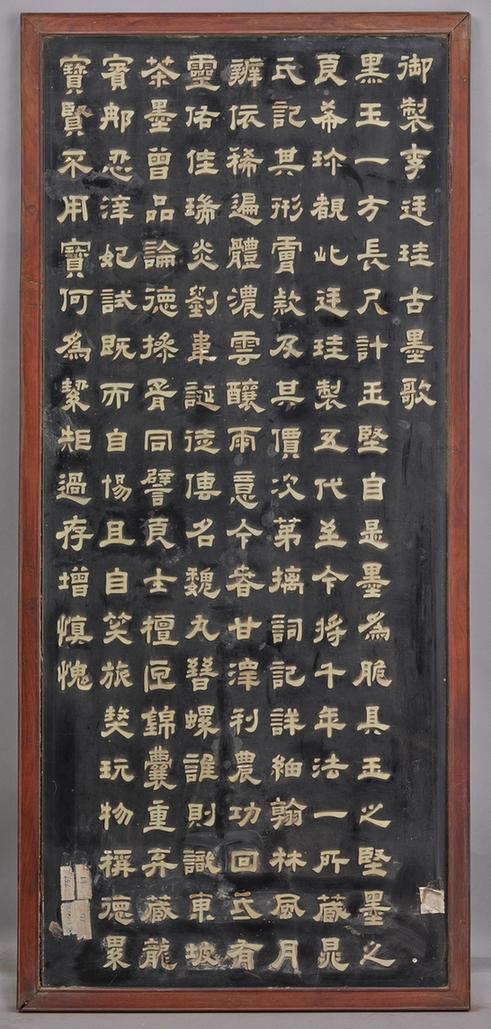 御製李廷珪古墨歌
黑玉一方長尺計玉堅自是墨為脆具玉之堅墨之
良希珍覩此廷珪製五代至今將千年法一所藏晁
氏記其形款及其價次第摛詞記詳紬翰林風月
辨依稀遍體濃雲釀雨意今春甘澤利農功回有
靈佑佳瑞炎劉韋誕徒傳名魏丸晉螺誰則識東坡
茶墨曾品論德操胥同譬良士檀匣錦囊重弆藏龍
賓郍忍淬妃試既而自惕且自笑旅獒玩物德累
寶賢不用寶何為絜矩過存增慎愧